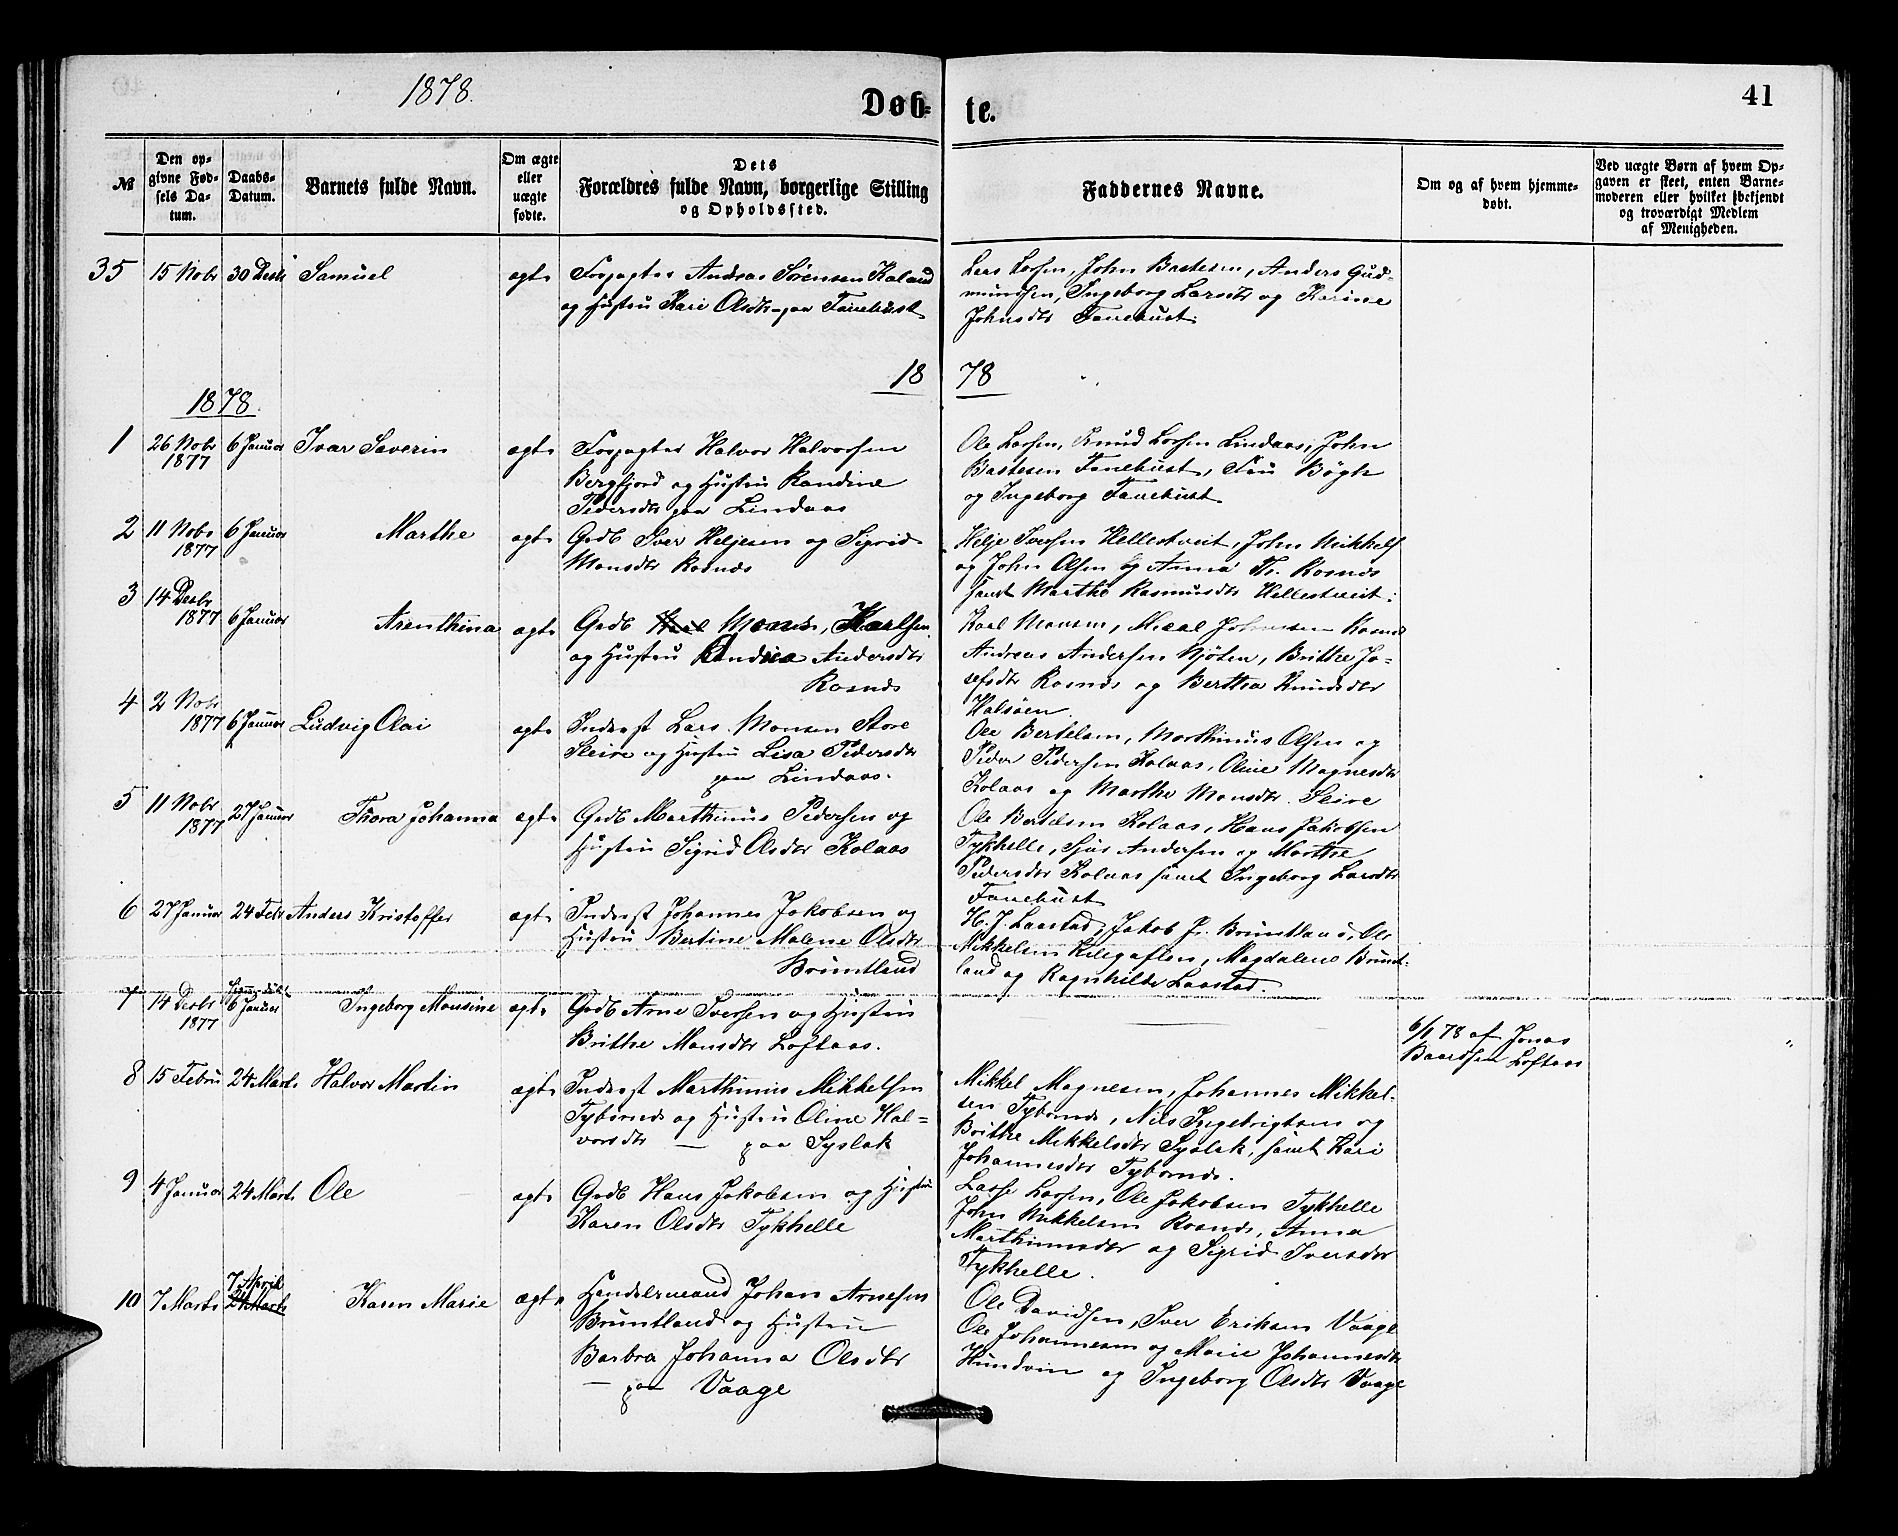 1878.
Døb-
te.
41
№
Den op-
givne Fød-
sels Da-
tum.
Daabs-
Datum.
Barnets fulde Navn.
Om ægte
eller
uægte
fødte.
Dets
Forældres fulde Navn, borgerlige Stilling
og Opholdssted.
Faddernes Navne.
Om og af hvem hjemme-
døbt.
Ved uægte Børn af hvem Op-
gaven er skeet, enten Barne-
moderen eller hvilket bekjendt
og troværdigt Medlem
af Menigheden.
35 15 Nobr 30 Desbr Samuel ægte
Forpagter Andreas Sørensen Kaland
og Hustru Kari Olsdtr paa Fanehust
Lars Larsen, John Bastesen, Anders Gud-
mundsen, Ingeborg Larsdtr og Karine
Johnsdtr Fanehust.
18 78
1878.
1 26 Nobr 1877 6 Januar Ivar Severin ægte
Forpagter Halvor Halvorsen
Bergfjord og Hustru Randine
Pedersdtr paa Lindaas
Ole Larsen, Knud Larsen Lindaas, John
Bastesen Fanehust, Fru Bøgh
og Ingeborg Fanehust
2 11 Nobr 1877 6 Januar Marthe ægte
Grdb Iver Heljesen og Sigrid
Monsdtr Rosnes
Helje Iversen Hellestveit, John Mikkels
og John Olsen og Anna Rosnes
samt Marthe Rasmusdtr Hellestveit.
3 14 Desbr 1877 6 Januar Arenthina ægte
Grdb Mons Karlsen
og Hustru Andrea Andersdtr
Rosnes
Karl Monsen, Johnsen Rosnes
Andreas Andersen Njøten, Brithe Jo-
sefsdtr Rosnes og Berthea Knudsdtr
Halsøen
4 2 Nobr 1877 6 Januar Ludvig Olai ægte
Inderst Lars Monsen Store
Sleire og Hustru Lisa Pedersdtr
paa Lindaas.
Ole Bertelsen, Marthinus Olsen og
Peder Pedersen Kolaas, Oline Magnesdtr
Kolaas og Marthe Monsdtr Sleire
5 11 Nobr 1877 27 Januar Thora Johanna ægte
Grdb Marthinus Pedersen og
Hustru Sigrid Olsdtr Kolaas
Ole Bertelsen Kolaas, Hans Jakobsen
Tykhelle, Sjur Andersen og Marthe
Pedersdtr Kolaas samt Ingeborg Larsdtr
Fanehust
6 27 Januar 24 Febr Anders Kristoffer ægte
Inderst Johannes Jakobsen og
Hustru Bertine Malene Olsdtr
Bruntland
H. J. Laastad, Jakob J. Bruntland, Ole
Mikkelsen Kilegaflen, Magdalene Brunt-
land og Ragnhilde Laastad.
7 14 Desbr 1877 Hjemmedøbt 6 Januar Ingeborg Monsine ægte
Grdb Arne Iversen og Hustru
Brithe Monsdtr Loftaas.
6/1 78 af Jonas
Baardsen Loftaas
8 15 Febru 24 Marts Halvor Martin ægte
Inderst Marthinus Mikkelsen
Tybernes og Hustru Oline Hal-
vorsdtr — paa Syslak
Mikkel Magnesen, Johannes Mikkel-
sen Tybernes, Nils Ingebrigtsen og
Brithe Mikkelsdtr Syslak, samt Kari
Johannesdtr Tybernes.
9 4 Januar 24 Marts Ole ægte
Grdb Hans Jakobsen og Hustru
Karen Olsdtr Tykhelle
Lasse Larsen, Ole Jakobsen Tykhelle
John Mikkelsen Rosnes, Anna
Marthinusdtr og Sigrid Iversdtr
Tykhelle.
10 7 Marts 7 April 24 Marts Karen Marie ægte
Handelsmand Johan Arnesen
Bruntland og Hustru
Barbra Johanna Olsdtr
— paa Vaage
Ole Davidsen, Iver Eriksen Vaage
Ole Johannesen og Marie Johannesdtr
Hundvin og Ingeborg Olsdtr Vaage